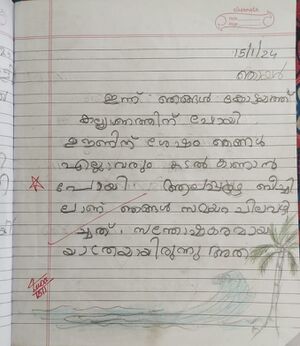 classmate
Date
Page
15/1/24
ഞായർ
ഇന്ന് ഞങ്ങൾ കോട്ടയത്ത്
കല്യാണത്തിന് പോയി
ശേഷം ഞങ്ങൾ
എല്ലാവരും കടൽ കാണാൻ
പോയി. ആലപ്പുഴ ബീച്ചി
ലാണ് ഞങ്ങൾ സമയം ചിലവഴി
ച്ചത്. സന്തോഷകരമായ
യാത്രയായിരുന്നു അത്
15/1